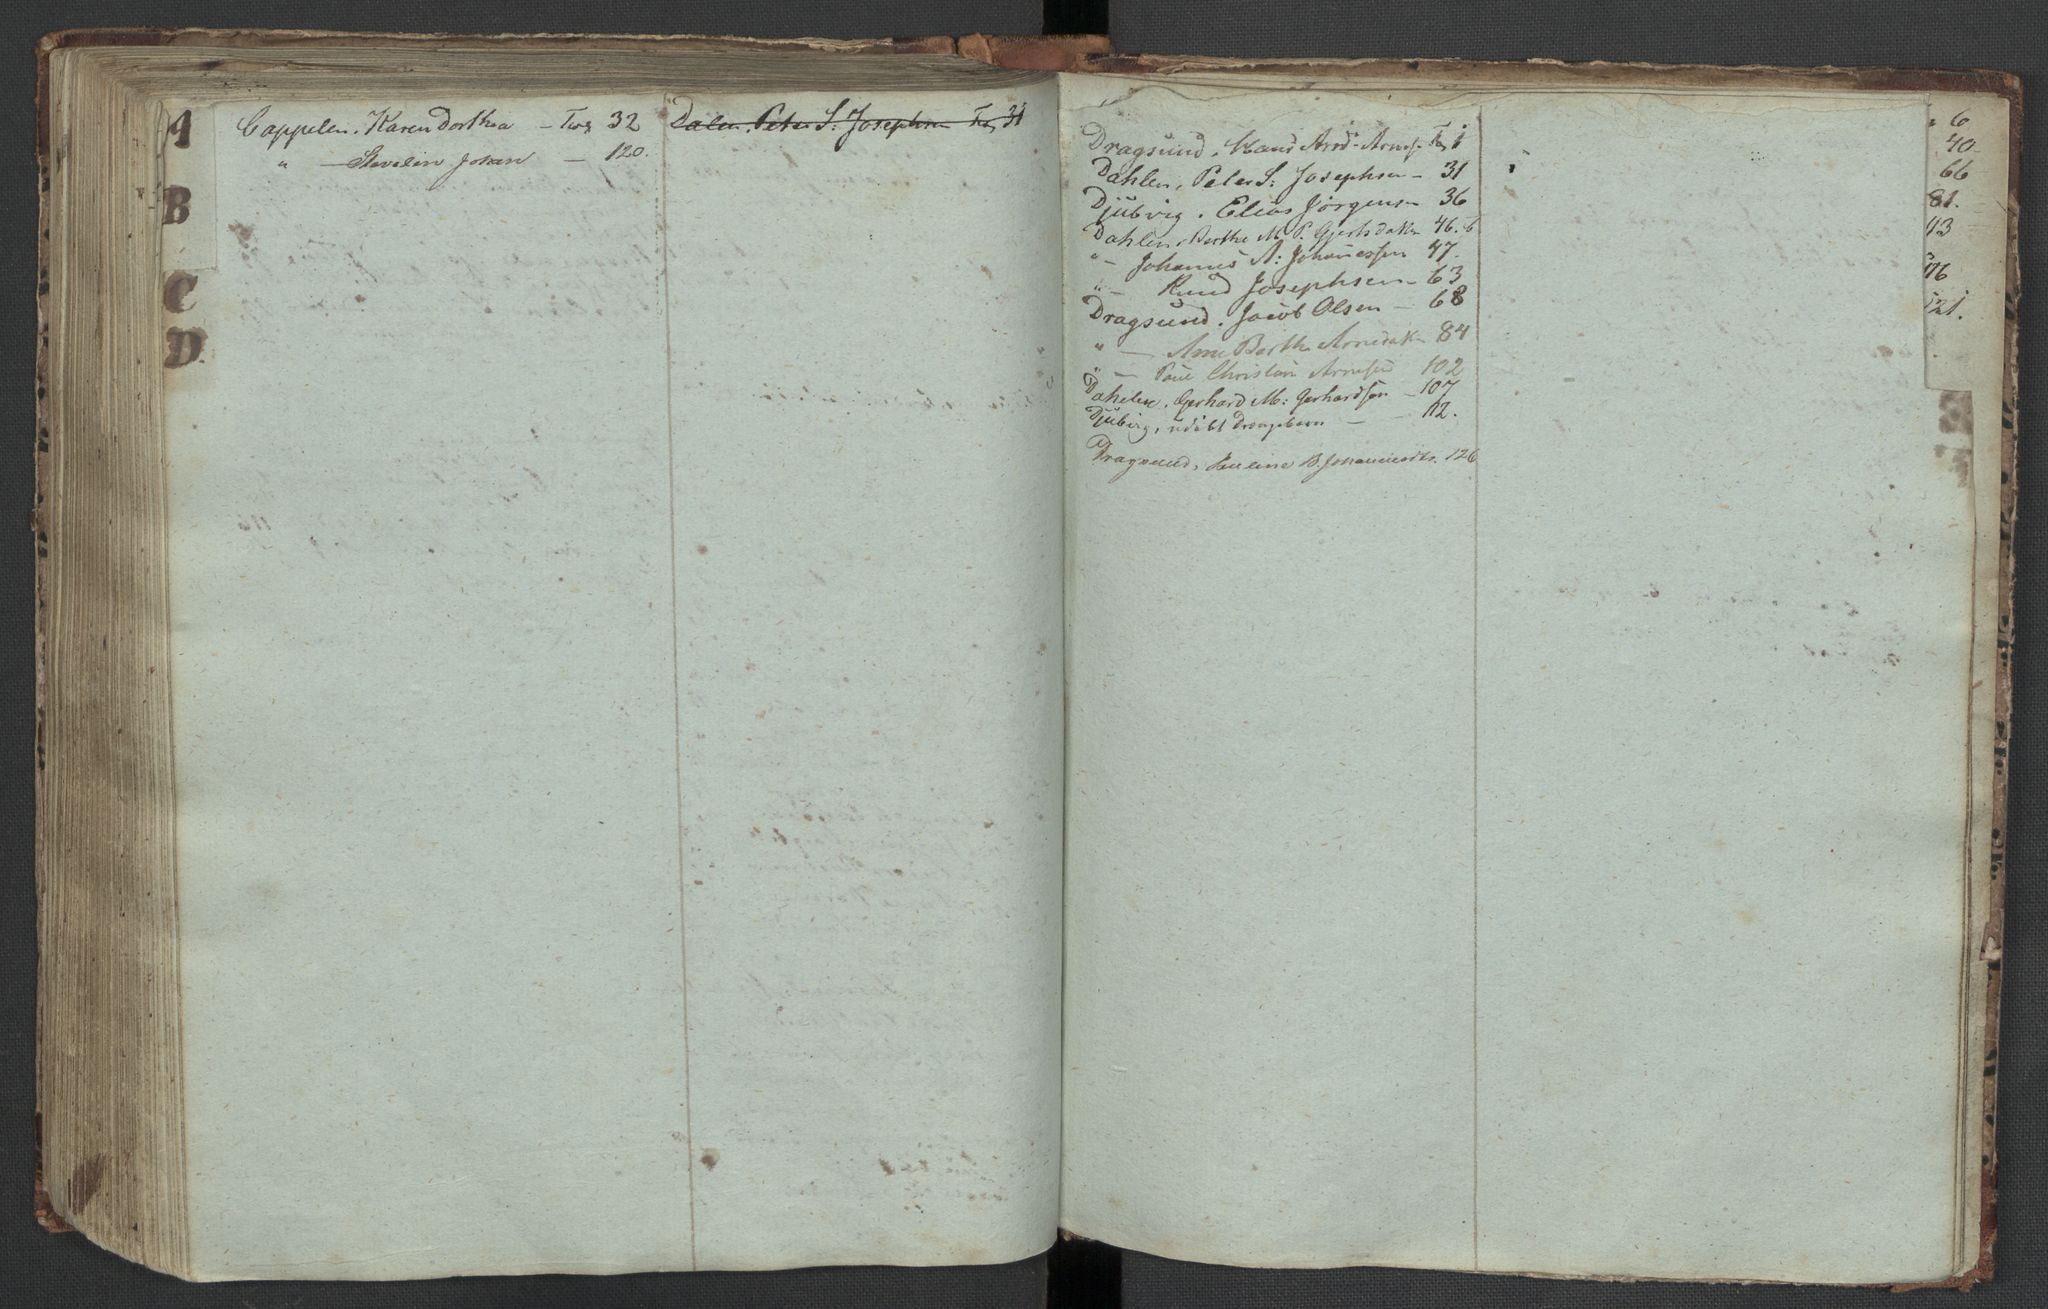 A
B
C
D
Cappelen, Karen Dorthea — Fol 32
" — Johan — 120.
Dalen, Peter S: Josephsen Fol 31
Dragsund, Arne- 1
Dahlen, Peter S: Josephsen — 31
Djubvig, Elias Jørgensen 36
Dahlen, Berthe M. P. Gjertsdatter 46. b
" — Johannes A: Johanessen 47.
" — Knud Josephsen — 63
Dragsund, Jacob Olsen — 68
" — Ane Berthe Arnedatter 84
" — Poul Christian Arnesen 102
Dahlen, Gerhard M: Gerhardsen — 107
Djubvig, udøbt Drengebarn — 112.
Dragsund, Pauline B. Johannesdtr. 126
6
40
66
81.
43
76
121.